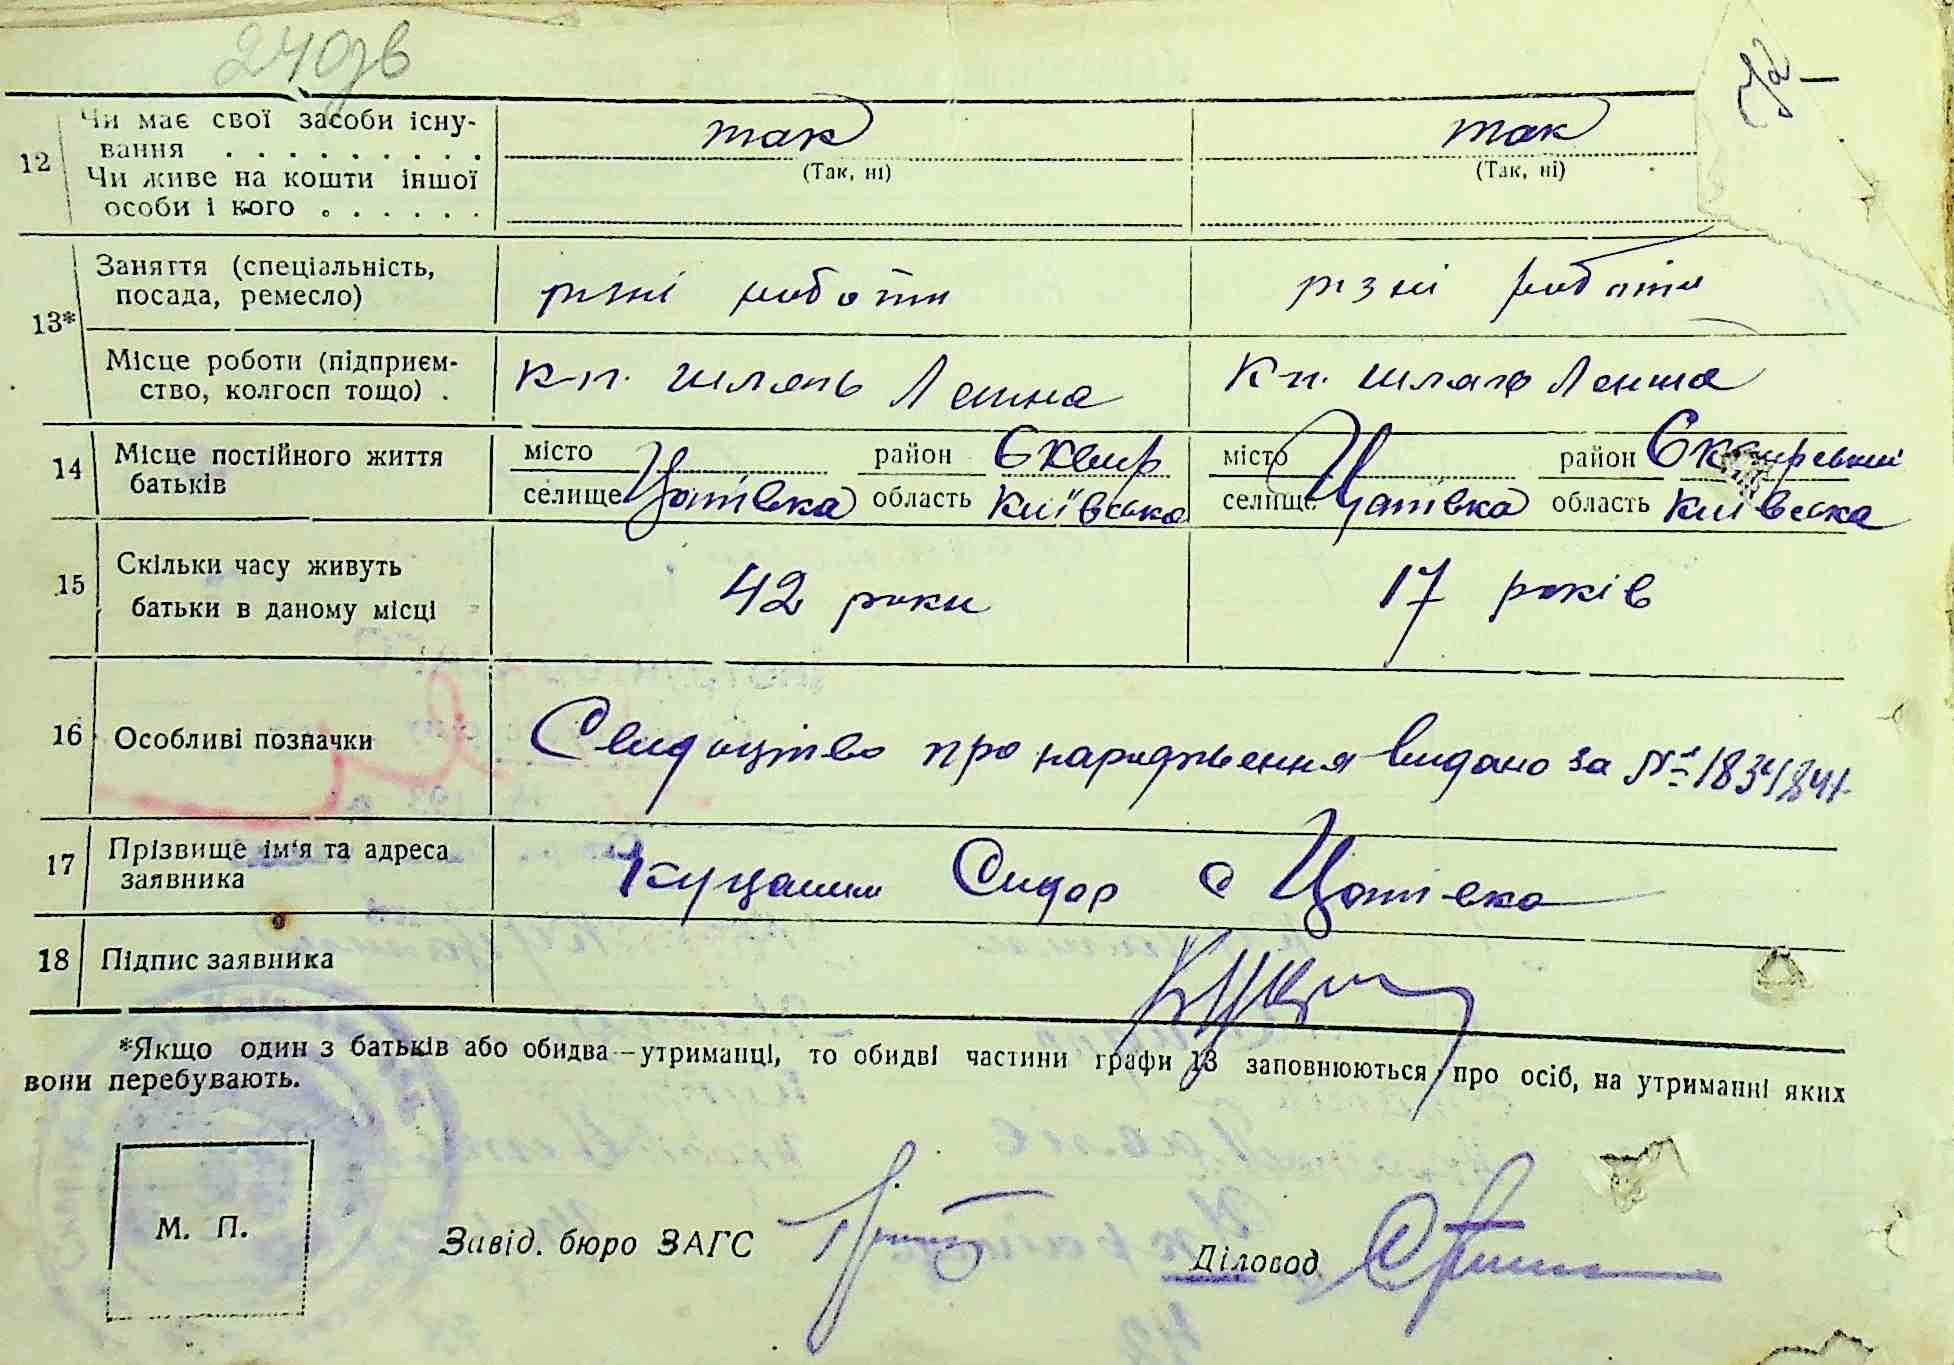 240зв
12 Чи має свої засоби існу- так так
вання . . . . . . . . . (Так, ні) (Так, ні)
Чи живе на кошти іншої
особи і кого . . . . . .
13* Заняття (спеціальність, різні роботи різні роботи
посада, ремесло)
Місце роботи (підприєм- к-п. шлях Леніна к-п. шлях Леніна
ство, колгосп тощо) .
14 Місце постійного життя місто район Сквир місто район Сквирський
батьків селище Цапіївка область Київська селище Цапіївка область Київська
15 Скільки часу живуть 42 роки 17 років
батьки в даному місці
16 Особливі позначки Свидоцтво про народження видано за № 1834841
17 Прізвище ім'я та адреса Сидор с Цапіївка
заявника
18 Підпис заявника
*Якщо один з батьків або обидва—утриманці, то обидві частини графи 13 заповнюються про осіб, на утриманні яких
вони перебувають.
М. П.
Завід. бюро ЗАГС
Діловод